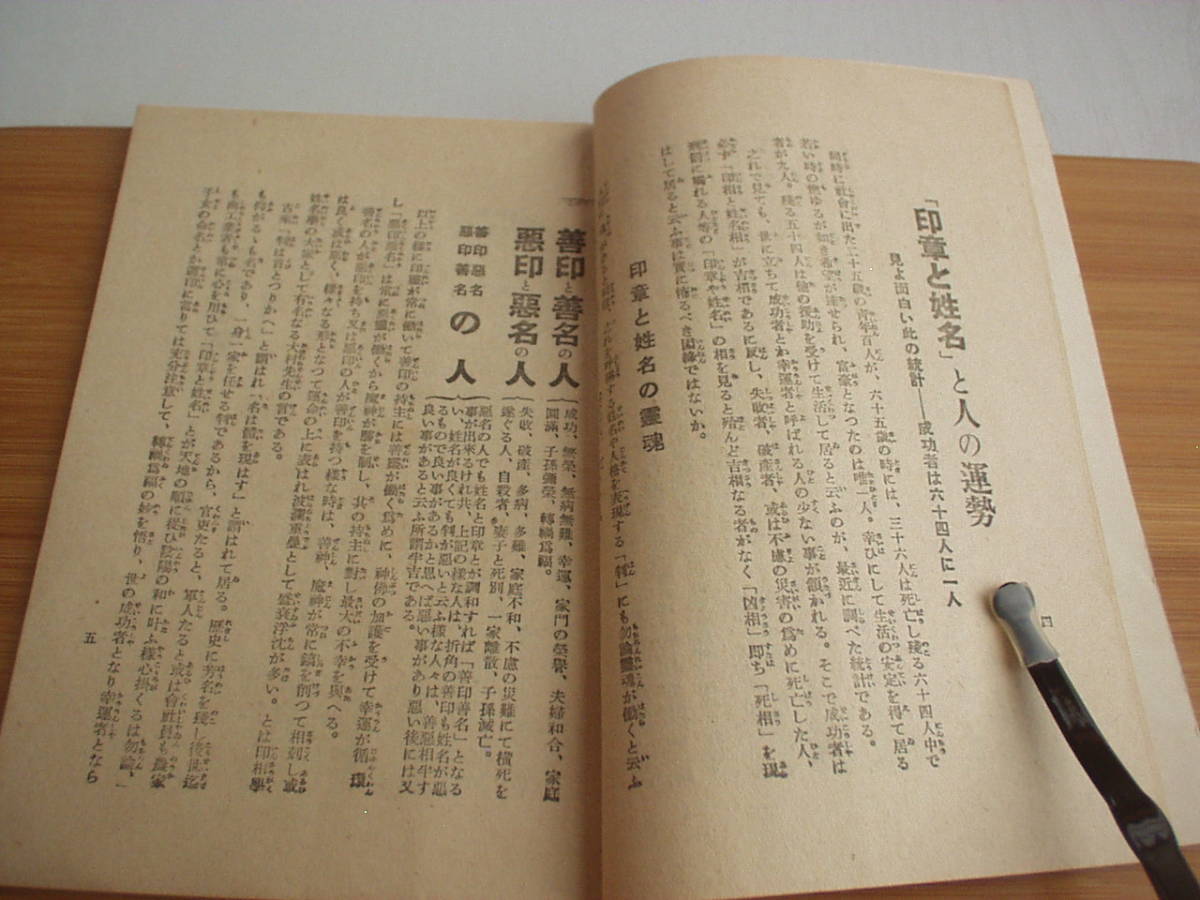 四
「印章と姓名」と人の運勢
見よ面白い此の統計──成功者は六十四人に一人
同時に社會に出た二十五歳の青年百人が、六十五歳の時には、三十六人は死亡し殘る六十四人中で
若い時の燃ゆるが如き希望が達せられ、富豪となつたのは唯一人。幸ひにして生活の安定を得て居る
者が九人。殘る五十四人は他の援助を受けて生活して居ると云ふのが、最近に調べた統計である。
之れで見ても、世に立ちて成功者とか幸運者と呼ばれる人の少ない事が領かれる。そこで成功者は
必ず「印相と姓名相」が吉相であるに反し、失敗者、破産者、或は不慮の災害の爲めに死亡した人、
刑罰に觸れる人等の「印章や姓名」の相を見ると殆んど吉相なる者がなく「凶相」即ち「死相」を現
はして居ると云ふ事は實に怖るべき因縁ではないか。
印章と姓名の靈魂
表現する「判」にも勿論靈魂が働くと云ふ
善印と善名の人
成功、繁榮、無病無難、幸運、家門の榮譽、夫婦和合、家庭
圓滿、子孫彌榮、轉禍爲福。
惡印と惡名の人
失敗、破産、多病、多難、家庭不和、不慮の災難にて横死を
遂ぐる人、自殺者、妻子と死別、一家離散、子孫滅亡。
善印惡名
惡印善名
の人
惡名の人でも姓名と印章とが調和すれば「善印善名」となる
事が出來るけれ共、上記の樣な人は、折角の善印も姓名が惡
い、姓名が良くても判が惡いと云ふ樣な人々は、善惡相半す
るもので良い事があるかと思へば惡い事があり惡い後には又
良い事があると云ふ所謂半吉である。
以上の樣に印靈が常に働いて善印の持主には善靈が働く爲めに、神佛の加護を受けて幸運が循環
し「惡印惡名」は常に惡靈が働くから魔神が勝を制し、其の持主に對し最大の不幸を與へる。
善名の人が惡印を持ち又は惡印の人が善印を持つ樣な時は、善神、魔神が常に鎬を削つて相刺し或
は良く或は惡く、樣々なる形となつて運命の上に表はれ波瀾重疊として盛衰浮沈が多い。とは印相學
姓名學の大家として有名なる大村先生の言である。
古來「判は首とつりかへ」と謂はれ「名は體を現はす」と謂はれて居る。歴史に芳名を殘し後世迄
も判がるゝも名であり、一身一家を任せる判であるから、官吏たると、軍人たると或は會社員も農家
も商工業者も常に心を用ひて「印章と姓名」とが天地の順に從ひ陰陽の和に叶ふ樣心掛くるは勿論、
子女の命名とか調印に當りては充分注意して、轉禍爲福の妙を悟り、世の成功者となり幸運者となら
五